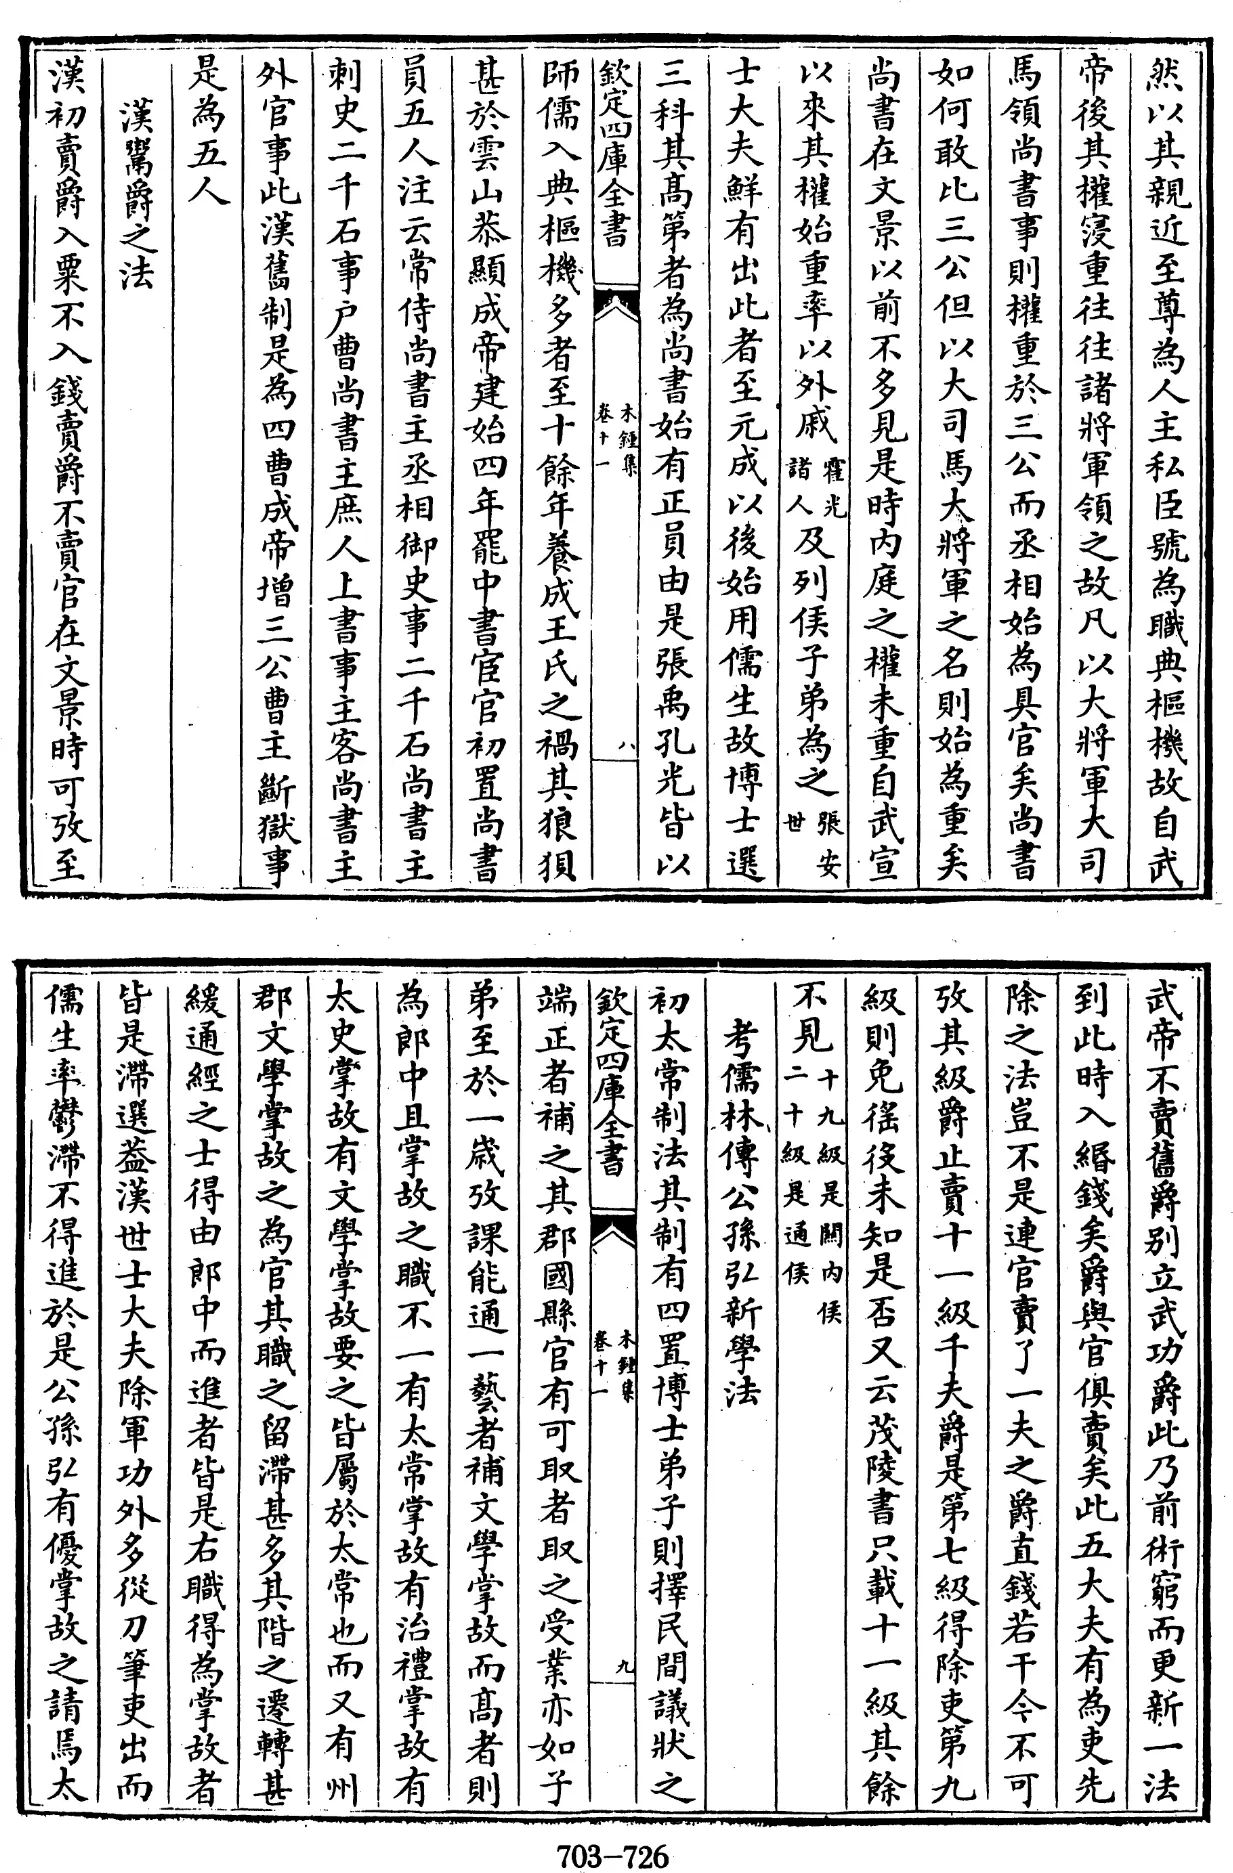 然以其親近至尊為人主私臣號為職典樞機故自武
帝後其權寖重往往諸將軍領之故凡以大將軍大司
馬領尚書事則權重於三公而丞相始為具官矣尚書
如何敢比三公但以大司馬大將軍之名則始為重矣
尚書在文景以前不多見是時内庭之權未重自武宣
以來其權始重率以外戚霍光諸人及列侯子弟為之張安世
士大夫鮮有出此者至元成以後始用儒生故博士選
三科其髙第者為尚書始有正員由是張禹孔光皆以
欽定四庫全書
木鍾集
卷十一
八
師儒入典樞機多者至十餘年養成王氏之禍其狼狽
甚於雲山恭顯成帝建始四年罷中書宦官初置尚書
員五人注云常侍尚書主丞相御史事二千石尚書主
刺史二千石事户曹尚書主庶人上書事主客尚書主
外官事此漢舊制是為四曹成帝增三公曹主斷獄事
是為五人
漢鬻爵之法
漢初賣爵入粟不入錢賣爵不賣官在文景時可攷至
武帝不賣舊爵别立武功爵此乃前術窮而更新一法
到此時入緡錢矣爵與官俱賣矣此五大夫有為吏先
除之法豈不是連官賣了一夫之爵直錢若干今不可
攷其級爵止賣十一級千夫爵是第七級得除吏第九
級則免徭役未知是否又云茂陵書只載十一級其餘
不見十九級是關内侯二十級是通侯
考儒林傳公孫弘新學法
初太常制法其制有四置博士弟子則擇民間議狀之
欽定四庫全書
木鍾集
卷十一
九
端正者補之其郡國縣官有可取者取之受業亦如子
弟至於一嵗攷課能通一藝者補文學掌故而髙者則
為郎中且掌故之職不一有太常掌故有治禮掌故有
太史掌故有文學掌故要之皆屬於太常也而又有州
郡文學掌故之為官其職之留滯甚多其階之遷轉甚
緩通經之士得由郎中而進者皆是右職得為掌故者
皆是滯選葢漢世士大夫除軍功外多從刀筆吏出而
儒生率鬱滯不得進於是公孫弘有優掌故之請焉太
703-726